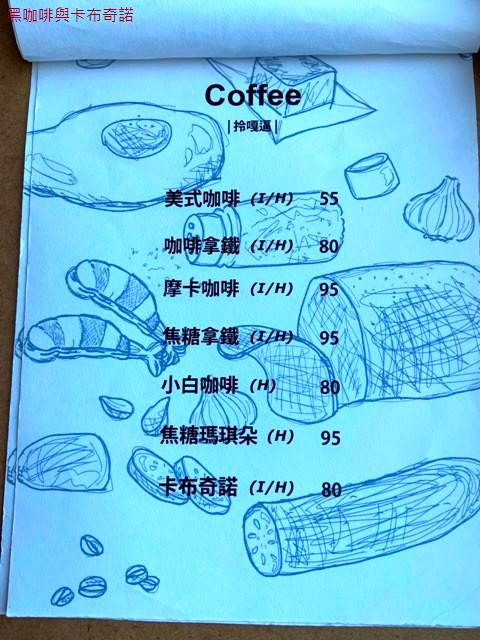 黑咖啡與卡布奇諾
Coffee
|拎嘎逼|
美式咖啡 (I/H) 55
咖啡拿鐵 (I/H) 80
摩卡咖啡 (I/H) 95
焦糖拿鐵 (I/H) 95
小白咖啡 (H) 80
焦糖瑪琪朵 (H) 95
卡布奇諾 (I/H) 80